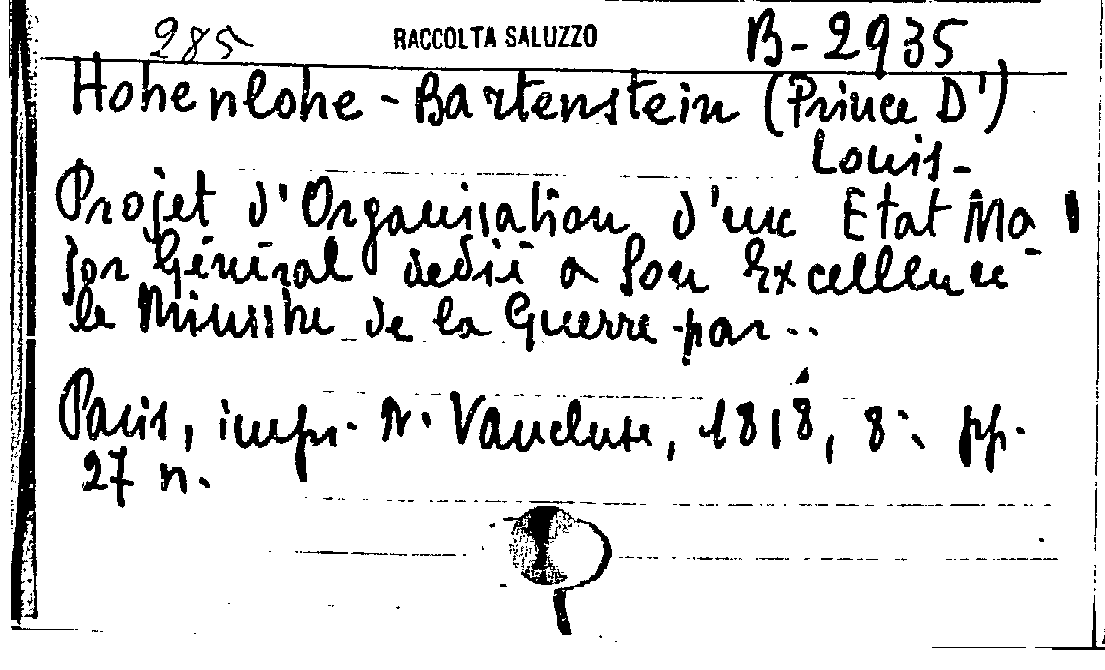 285 RACCOLTA SALUZZO B-2935
Hohenlohe-Bartenstein (Prince D')
Louis-
Projet d'Organisation d'un Etat Ma
jor Général dedié a Son Excellence
le Ministre de la Guerre par..
Paris, impr. N. Vaucluse, 1818, 8°: pp.
27 n.